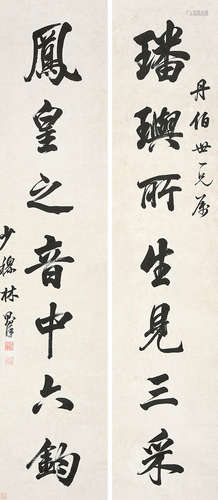 璠璵所生見三采
丹伯世一兄屬
鳳皇之音中六鈞
少穆林則徐